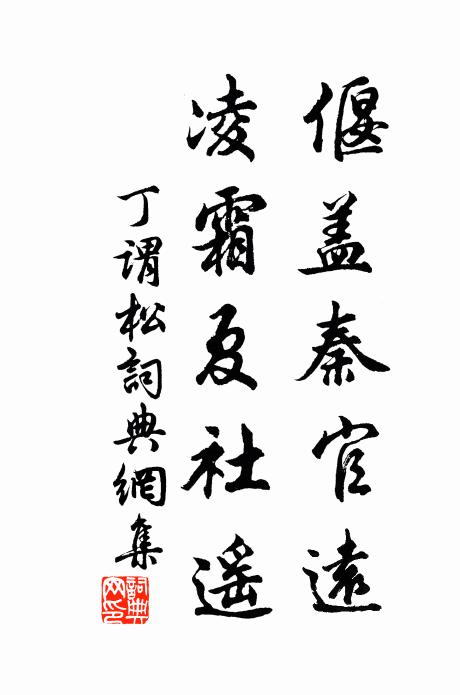 偃盖秦官遠
凌霜夏社遥
丁謂松詞典網集
詞典網印